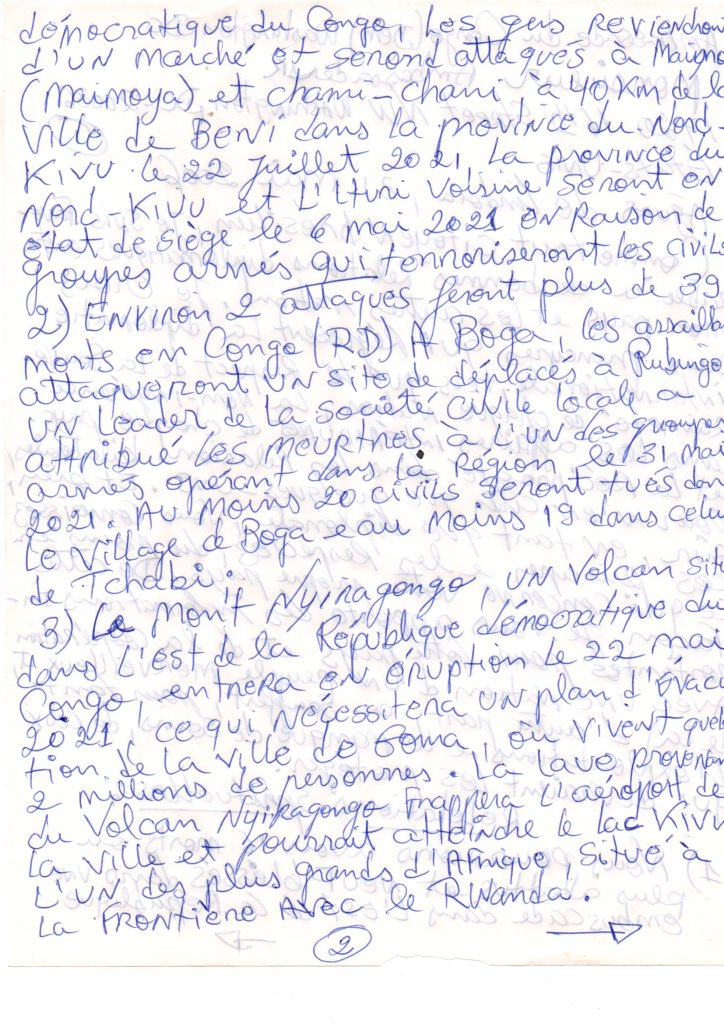 démocratique du Congo, Les gens Reviendron
d'un marché et seront attaqués à Maimo
(Maimoya) et chami-chani à 40 Km de la
ville de Beni dans la province du Nord-
Kivu le 22 Juillet 2021. La province du
Nord-Kivu et L'Ituri Voisine seront en
état de siège le 6 mai 2021 en Raison de
groupes armés qui terroriseront les civils
2) Environ 2 attaques feront plus de 39
morts en Congo (RD) A Boga, les assailla
attaqueront un site de déplacés à Rubingo
un Leader de la société civile locale a
attribué les meurtres à l'un des groupes
armés opérant dans la Région, le 31 mai
2021. Au moins 20 civils seront tués dan
Le village de Boga e au moins 19 dans celui
de Tchabi.
3) Le Mont Nyiragongo, un Volcan situ
dans L'est de la République démocratique du
Congo, entrera en éruption le 22 mai
2021, ce qui nécessitera un plan d'évacu
tion de la ville de Goma, où vivent quel
2 millions de personnes. La lave provenan
du Volcan Nyiragongo Frappera L'aéroport de
La ville et pourrait atteindre le lac Kivu
L'un des plus grands d'Afrique, situé à
La Frontière Avec le Rwanda.
2